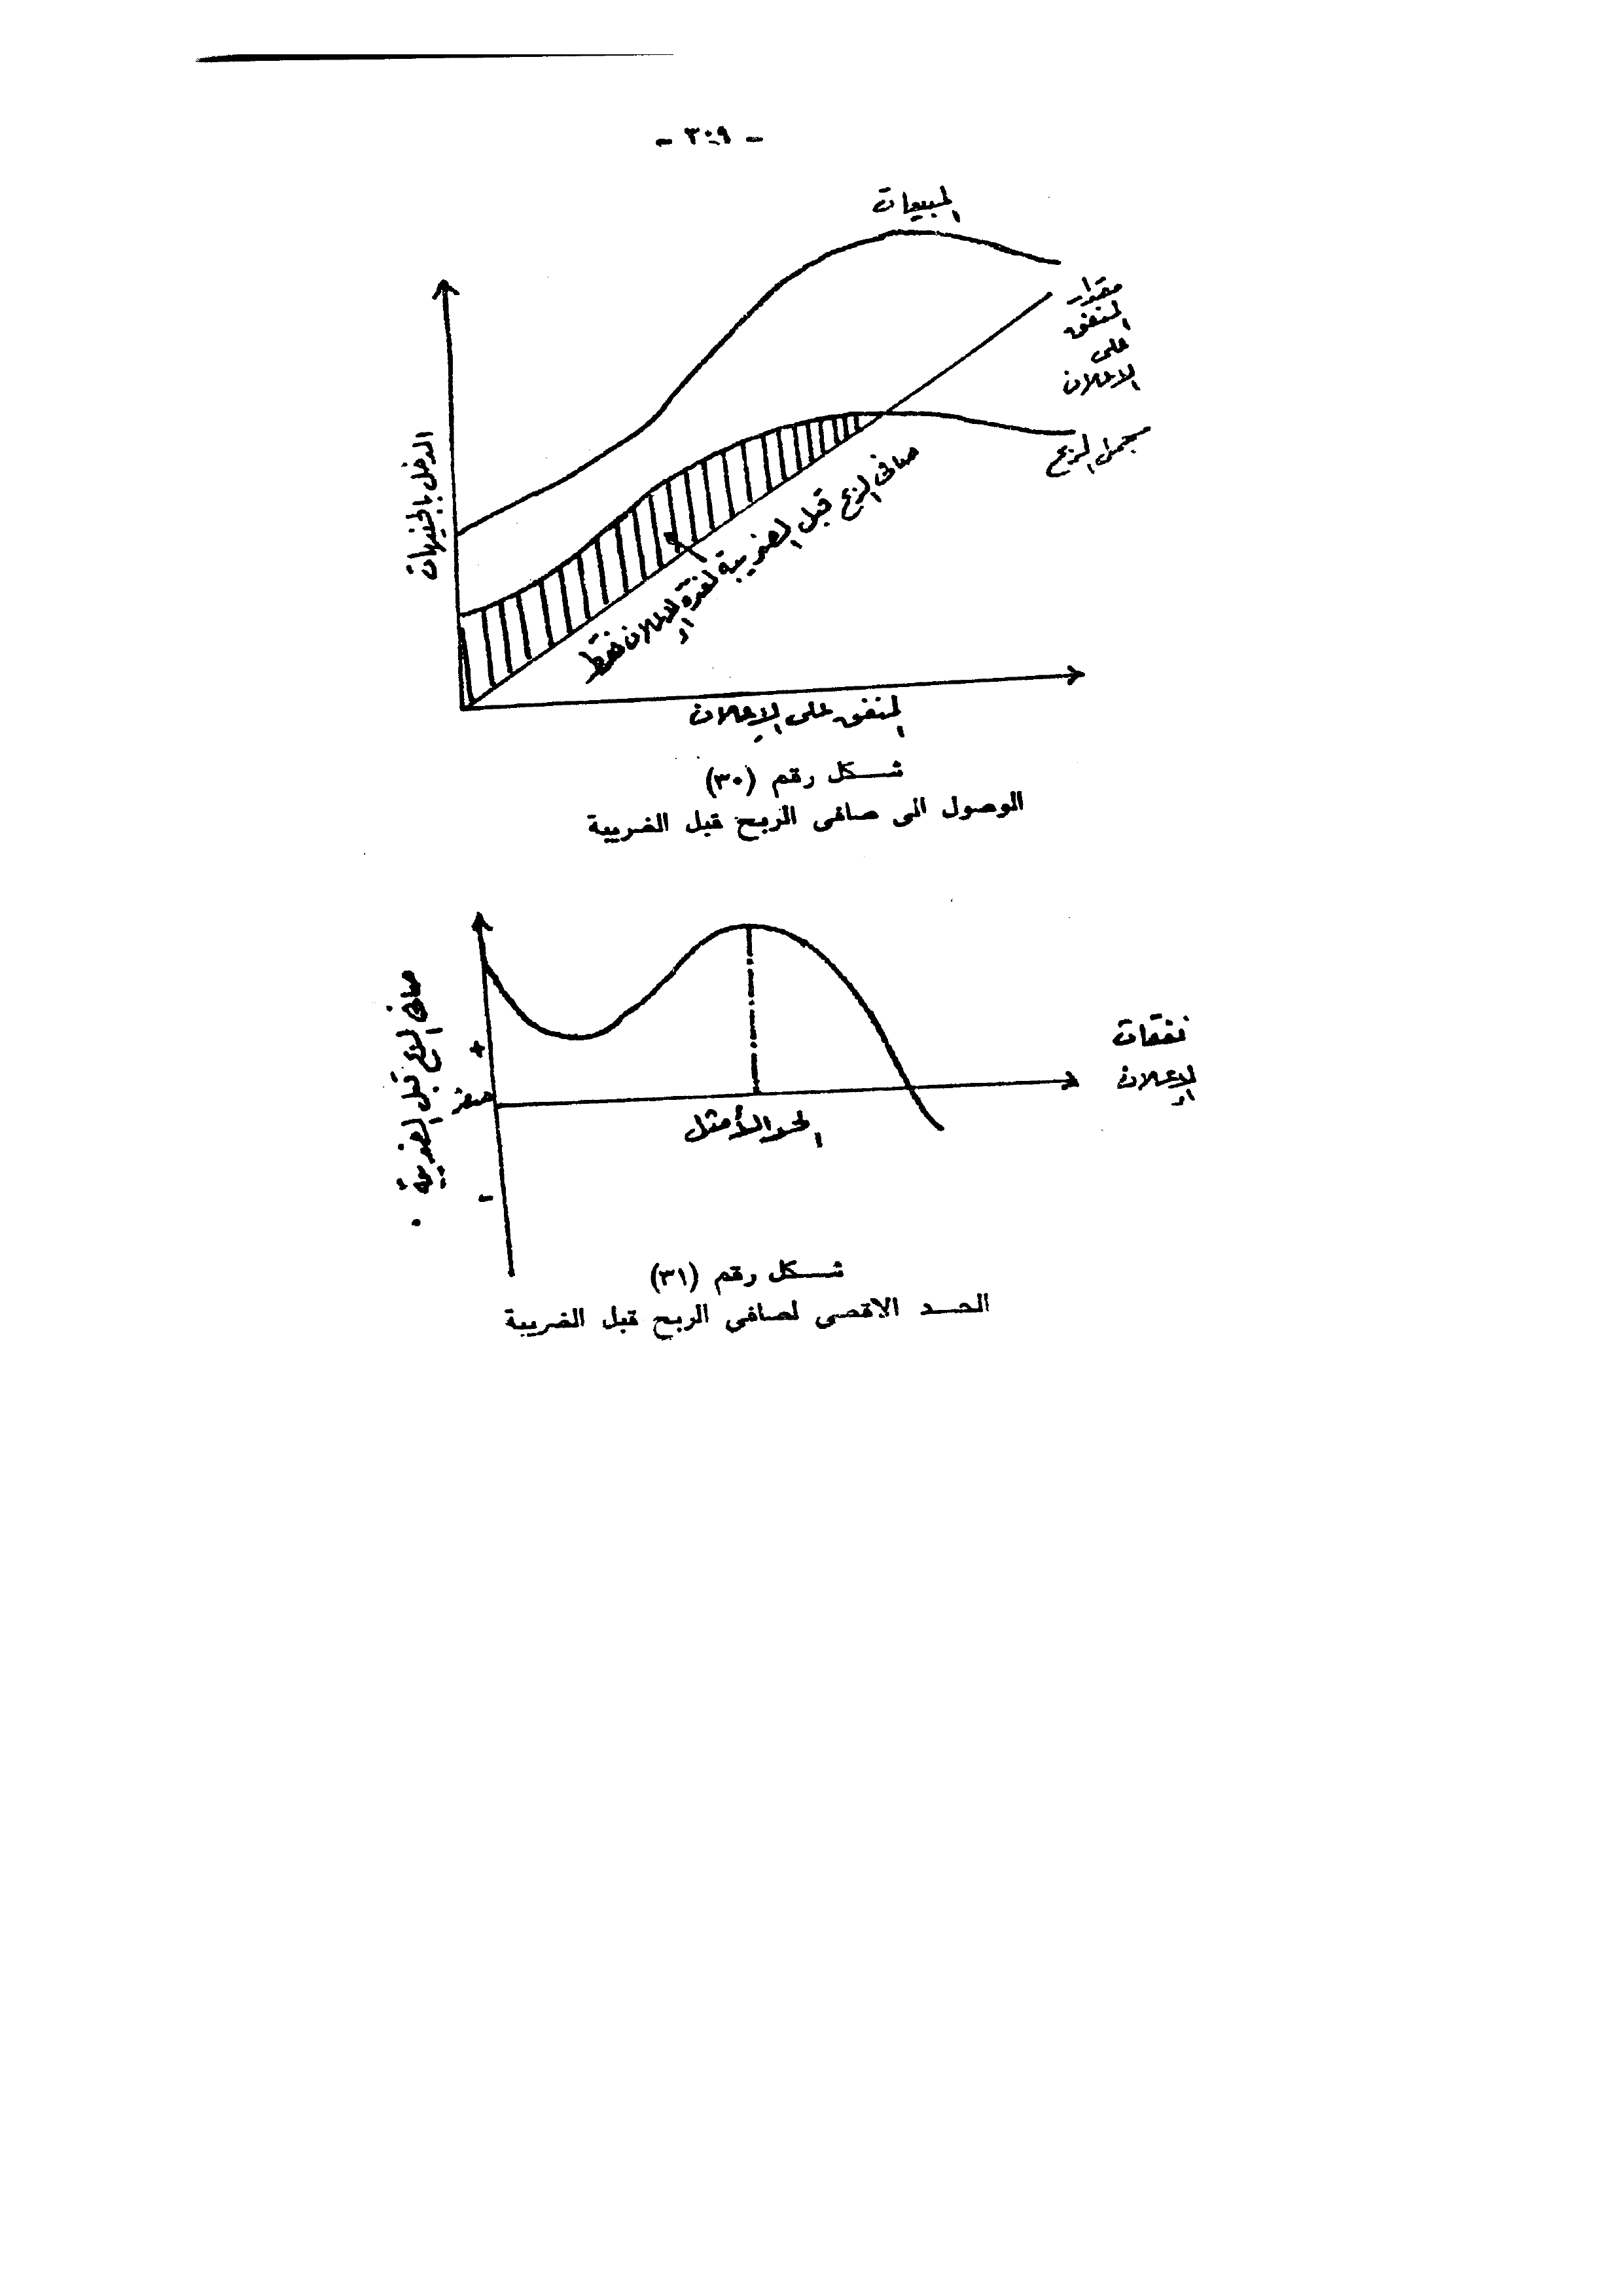 - ٣٠٩ -
المبيعات
مقدار
المنفق
على
الإعلان
مجمل الربح
الدخل بالجنيهات
صافى الربح قبل الضريبة لفترة الإعلان فقط
المنفق على الإعلان
شكل رقم (٣٠)
الوصول الى صافى الربح قبل الضريبة
صافى الربح قبل الضريبة .
+
صفر
-
نفقات
الإعلان
الحد الأمثل
شكل رقم (٣١)
الحد الاقصى لصافى الربح قبل الضريبة